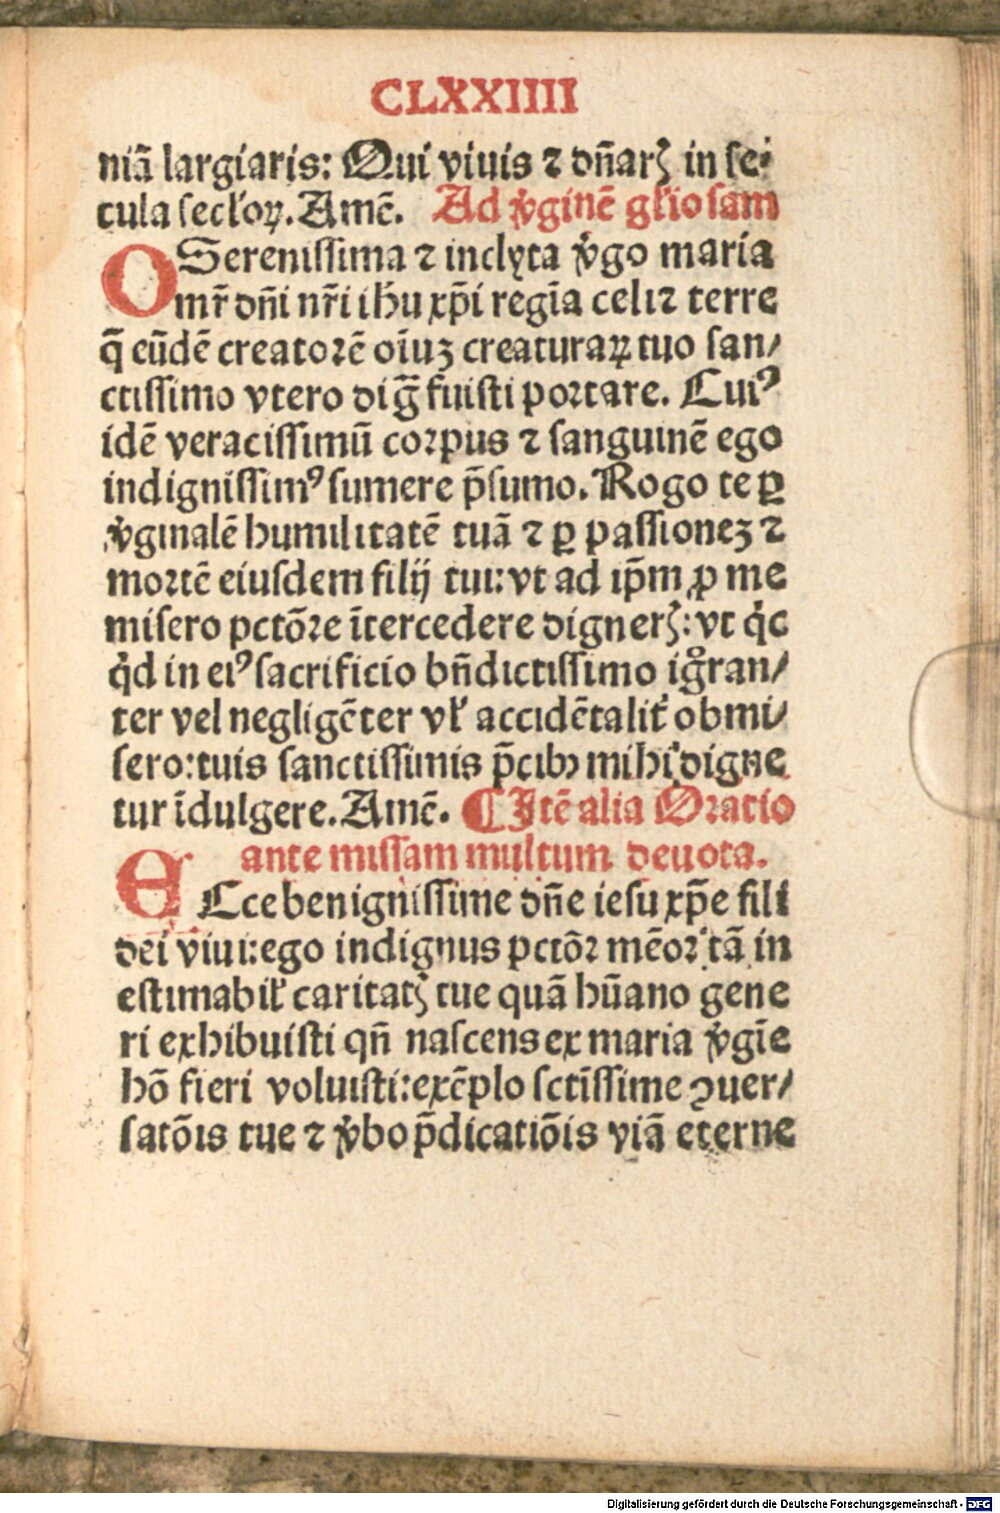 CLXXIIII
niã largiaris: Qui viuis ⁊ dñarꝭ in ſe⸗
cula ſecl'oꝝ. Amẽ. Ad v̓ginẽ gl'ioſam
OSereniſſima ⁊ inclyta v̓go maria
mr̃ dñi nr̃i ihu xp̃i regĩa celi ⁊ terre
q̃ eũdẽ creatoꝛẽ oĩuꝫ creaturaꝝ tuo ſan⸗
ctiſſimo vtero dig̃ fuiſti poꝛtare. Cuiꝰ
idẽ veraciſſimũ coꝛpus ⁊ ſanguinẽ ego
indigniſſimꝰ ſumere p̃ſumo. Rogo te ꝑ
v̓ginalẽ humilitatẽ tuã ⁊ ꝑ paſſioneꝫ ⁊
moꝛtẽ eiuſdem filij tui: vt ad ip̃m ꝓ me
miſero pctõꝛe ĩtercedere dignerꝭ: vt q̇c
q̇d in eiꝰ ſacrificio bñdictiſſimo igr̃an⸗
ter vel negligẽter vl' accidẽtalit̓ obmi⸗
ſero: tuis ſanctiſſimis p̃cibꝫ mihi digne
tur ĩdulgere. Amẽ. ¶ Itẽ alia Oratio
ante miſſam multum deuota.
ECce benigniſſime dñe ieſu xp̃e fili
dei viui: ego indignus pctõꝛ mẽoꝛ tã in
eſtimabil' caritatꝭ tue quã hũano gene
ri exhibuiſti qñ naſcens ex maria v̓gĩe
hõ fieri voluiſti: exẽplo ſctĩſſime ꝯuer⸗
ſatõis tue ⁊ v̓bo p̃dicatiõis viã eterne
Digitalisierung gefördert durch die Deutsche Forschungsgemeinschaft - DFG